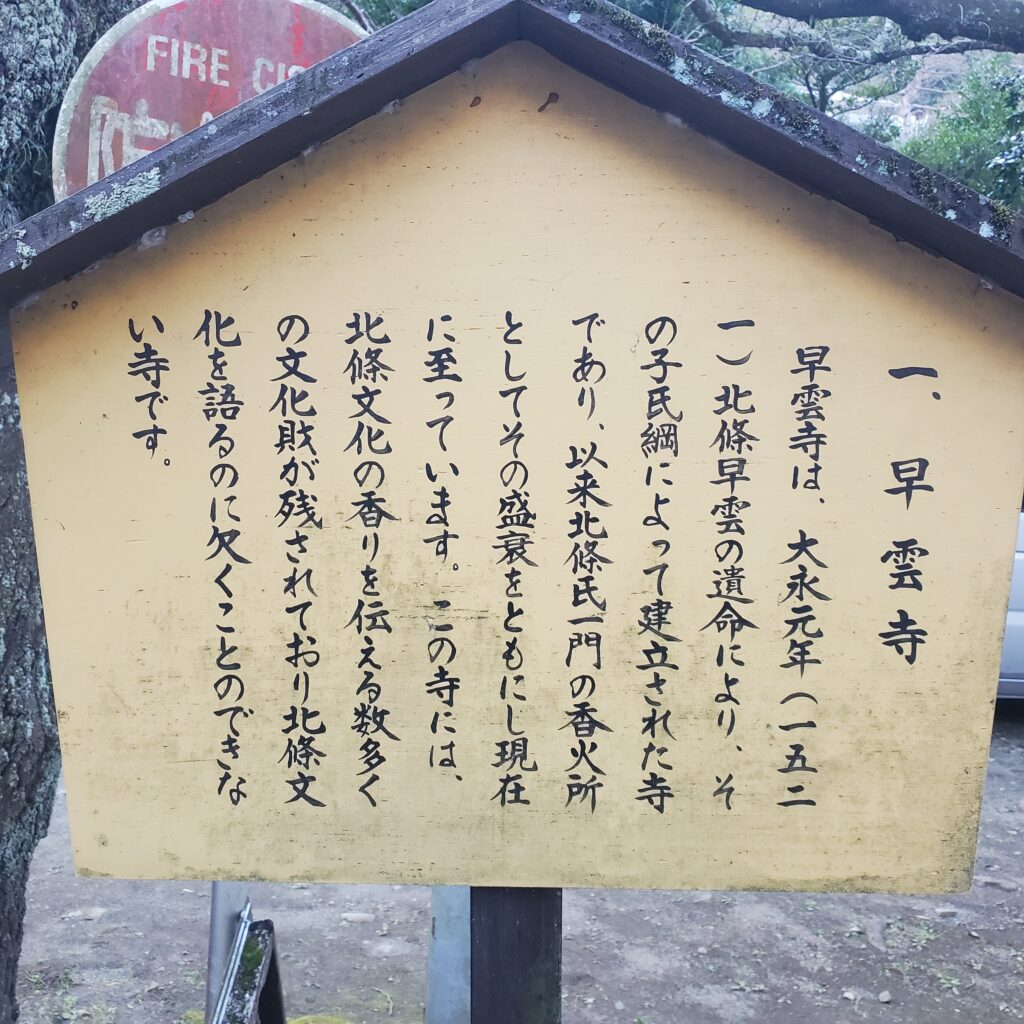 FIRE
一、早雲寺
早雲寺は、大永元年(一五二
一)北條早雲の遺命により、そ
の子氏綱によって建立された寺
であり、以来北條氏一門の香火所
としてその盛衰をともにし現在
に至っています。この寺には、
北條文化の香りを伝える数多く
の文化財が残されており北條文
化を語るのに欠くことのできな
い寺です。